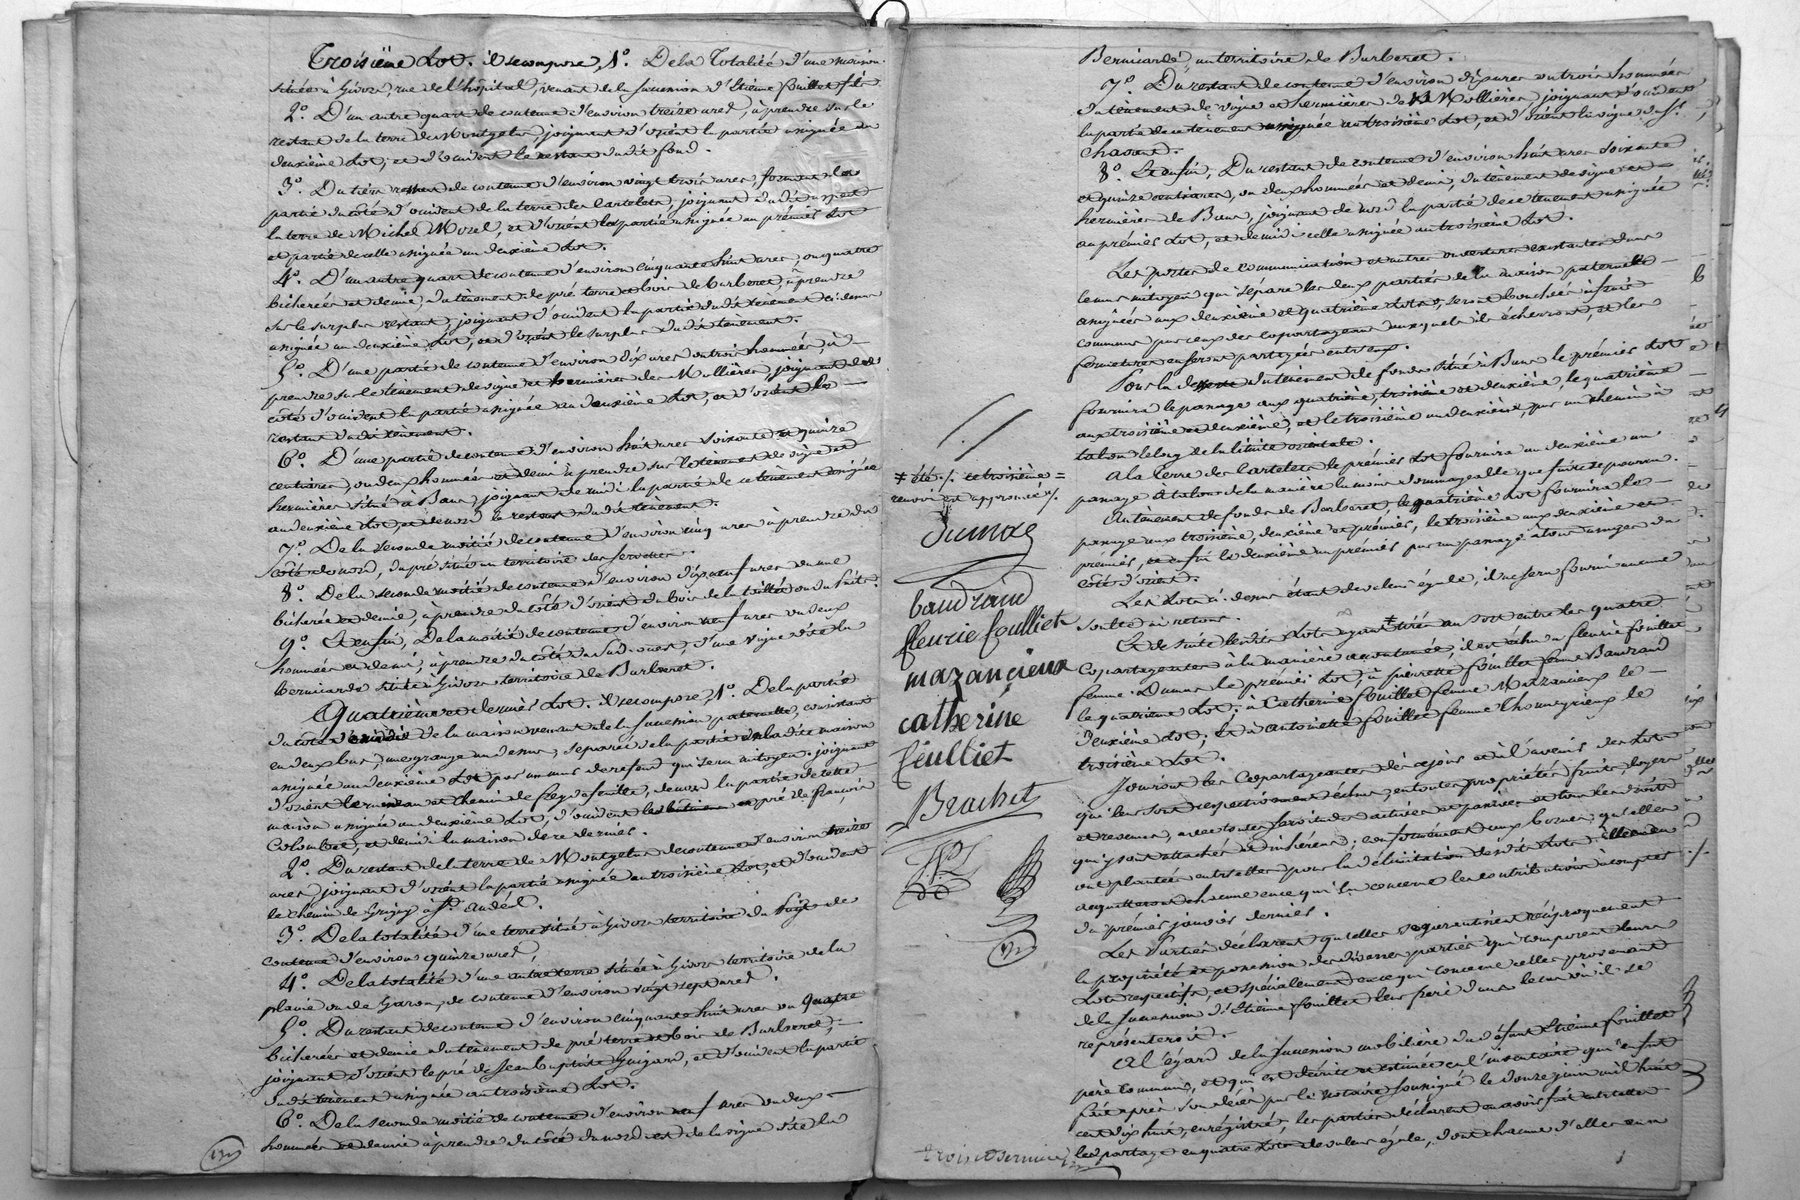 Troisième Lot. il se compose, 1°. De la Totalité d'une maison
située à Givors, rue de l'hôpital, venant de la succession d'Etiene fouillet fils
2°. D'un autre quart de contenue d'environ treize ares, à prendre sur le
restant de la terre de Montgelas, joignant d'orient la partie assignée au
deuxième Lot, et d'occident le restant dudit fond.
3°. Du tiers restant de contenue d'environ vingt trois ares, formant la
partie du côté d'occident de la terre des Cartelets, joignant dudit aspect
la terre de Michel Morel, et d'orient les partie assignée au prémier Lot
et partie de celle assignée au deuxième Lot.
4°. D'un autre quart de contenue d'environ cinquante huit ares, ou quatre
bicherées et demie, du tènement de pré terre et bois de Barberet, à prendre
sur le surplus restant, joignant d'occident la partie dudit tènement ci-dessus
assignée au deuxième Lot, et d'orient le surplus dudit tènement.
5°. D'une partie de contenue d'environ dix ares ou trois hommées, à
prendre sur le tènement de vigne et hermières des Mollières, joignant de
côté d'occident la partie assignée au deuxième Lot, et d'orient le
restant dudit tènement.
6°. D'une partie de contenue d'environ huit ares soixante et quinze
centiares, ou deux hommées et demi à prendre sur le tènement de vigne et
hermières situé à Bans, joignant de midi la partie de ce tènement assignée
au deuxième Lot et de nord le restant dudit tènement.
7°. De la seconde moitié de contenue d'environ cinq ares à prendre du
côté de nord, du pré situé au territoire des
8°. De la seconde moitié de contenue d'environ dix neuf ares ou une
bicherée et demie, à prendre du côté d'orient du bois de la
9°. Et enfin, De la moitié de contenue d'environ neuf ares ou deux
hommées et demi, à prendre du côté du sud-ouest, d'une vigne dite la
berniarde située à Givors territoire de Barberet.
Quatrième et dernier Lot. il se compose, 1°. De la partie
du côté de midi de la maison venant de la succession paternelle, consistant
en deux bas, une grange au dessus, séparée de la partie de la dite maison
assignée au deuxième Lot par un mur de refend qui sera mitoyen, joignant
d'orient le ruisseau et chemin de, de nord la partie de cette
maison assignée au deuxième Lot, d'occident les bâtiment et pré de françois
Colombet, et de midi la maison de ce dernier.
2°. Du restant de la terre de Montgelas de contenue d'environ treize
ares joignant d'orient la partie assignée au troisième Lot, et d'occident
le chemin de Grigny à St. andéol.
3°. De la totalité d'une terre située à Givors territoire du de
contenue d'environ quinze ares,
4°. De la totalité d'une autre terre située à Givors territoire de la
plaine ou de Garon, de contenue d'environ vingt sept ares.
5°. Du restant de contenue d'environ cinquante huit ares ou quatre
bicherées et demie du tènement de pré terre et bois de Barberet,
joignant d'orient le pré de Jean baptiste Guigard, et d'occident la partie
dudit tènement assignée au troisième Lot.
6°. De la seconde moitié de contenue d'environ neuf ares ou deux
hommées et demie à prendre du côté du nord-est de la vigne dite la
Berniarde au territoire de Barberet.
7°. Du restant de contenue d'environ dix ares ou trois hommées
du tènement de vigne et hermières de Mollières, joignant d'occident
la partie de ce tènement assignée au troisième Lot, et d'orient la vigne du Sr.
Chavant.
8°. Et enfin, Du restant de contenue d'environ huit ares soixante
et quinze centiares, ou deux hommées et demi, du tènement de vigne et
hermières de Bans, joignant de nord la partie de ce tènement assignée
au prémier Lot, et de midi celle assignée au troisième Lot.
Les portes de communication et autres ouvertures existantes dans
le mur mitoyen qui sépare les deux parties de la maison paternelle
assignées aux deuxième et quatrième Lots, seront bouchées à frais
communs par ceux des copartageans auxquels ils écherront, et les
fermetures en seront partagées entr'eux.
Pour la desserte du tènement de fonds situé à Bans le prémier Lot
fournira le passage aux quatrième, troisième et deuxième, le quatrième
aux troisième et deuxième, et le troisième au deuxième, par un chemin à
talon le long de la limite orientale.
A la terre des Cartelets le prémier Lot fournira au deuxième un
passage à talon de la manière la moins dommageable que faire se pourra.
Au tènement de fonds de Barberet, le quatrième Lot fournira le
passage aux troisième, deuxième et prémier, le troisième aux deuxième et
prémier, et enfin le deuxième au prémier par un passage à leur usage du
côté d'orient.
Les Lots ci-dessus étant de valeur égale, il ne sera fourni aucune
soulte ni retour.
Et de suite lesdits Lots ayant # tirés au sort entre les quatre
Copartageantes à la manière accoutumée, il est échu à fleurie fouillet
femme Dumas le prémier Lot, à pierrette fouillet femme Baudrand
le quatrième Lot, à Catherine fouillet femme Mazancieux le
deuxième Lot; Et à antoinette fouillet femme Chomeyrieux le
troisième Lot.
Jouiront les Copartageantes dès ce jour et à l'avenir des Lots
qui leur sont respectivement échus, en toutes propriétés fruits, loyers
et revenus, avec toutes servitudes actives et passives et tous les droits
qui y sont attachés et inhérens; en se conformant aux bornes qu'elles
ont plantées entr'elles pour la délimitation desdits Lots, elles en
acquitteront chacune en ce qui la concerne les contributions à compter
du prémier janvier dernier.
Les Parties déclarent qu'elles se garantissent réciproquement
la propriété et possession des diverses parties qui composent leurs
Lots respectifs, et spécialement en ce qui concerne celles provenant
de la succession d'Etienne fouillet leur frère dans le cas où il se
représenteroit.
A l'égard de la succession mobilière du défunt Etienne fouillet
père commun, et qui est décrite et estimée en l'inventaire qui en fut
fait après son décès par le notaire soussigné le douze juin mil huit
cent dix huit, enrégistré, les parties déclarent en avoir fait entr'elles
le partage en quatre Lots de valeur égale, dont chacune d'elles en a
# été ./. ce troisième
renvoi est approuvé ./.
Dumas
baudrand
fleurie foulliet
mazancieux
catherine
feulliet
Brachet